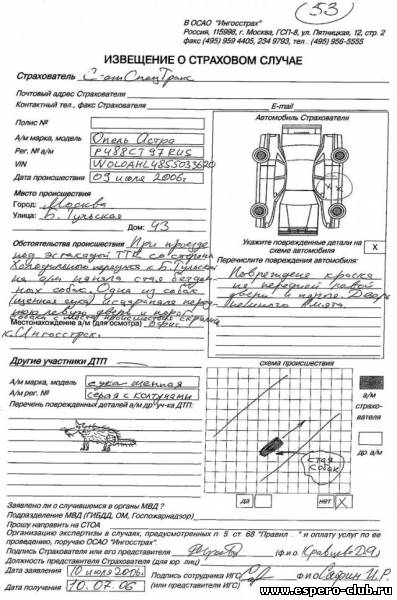 53
В ОСАО "Ингосстрах"
Россия, 115998, г. Москва, ГСП-8, ул. Пятницкая, 12, стр. 2
факс (495) 959 4405, 234 9793, тел. (495) 956-5555
ИЗВЕЩЕНИЕ О СТРАХОВОМ СЛУЧАЕ
Страхователь
Почтовый адрес Страхователя
Контактный тел., факс Страхователя E-mail
Полис №
Автомобиль Страхователя
А/м марка, модель Опель Астра
Рег. № а/м Р488СТ97RUS
VIN W0L0AHL4855033620
Дата происшествия 09 июля 2006г
Место происшествия
Город: Москва
Улица: Б. Тульская
Дом: 43
Укажите поврежденные детали на
схеме автомобиля X
Обстоятельства происшествия При проезде
под эстакадой ТТК со стороны
Холодильного переулка к Б. Тульской
на а/м напала стая бездом
ных собак. Одна из собак
(щенная сука) исцарапала перед
нюю левую дверь и порог.
Собака с места происшествия скрылась
Перечислите повреждения автомобиля:
Повреждения краски
на передней левой
двери и пороге. Дверь
немного помята.
Местонахождение а/м (для осмотра) офис
к. Ингосстрах.
Другие участники ДТП
схема происшествия
А/м марка, модель сука щенная
А/м рег. № серая с колтунами
Перечень поврежденных деталей а/м др. уч-ка ДТП:
а/м
страхо-
вателя
др. а/м
стая
собак
да нет X
Заявлено ли о случившемся в органы МВД ?
Подразделение МВД (ГИБДД, ОМ, Госпожарнадзор)
Прошу направить на СТОА
Организацию экспертизы в случаях, предусмотренных п. 5 ст. 68 "Правил..." и оплату услуг по ее
проведению, поручаю ОСАО "Ингосстрах".
Подпись Страхователя или его представителя (фио
Должность представителя Страхователя (для юр. лиц)
Дата заявления 10 июля 2006г.
Подпись сотрудника ИГС фио
Дата получения 10.07.06 (или представителя ИГС)
www.espero-club.ru